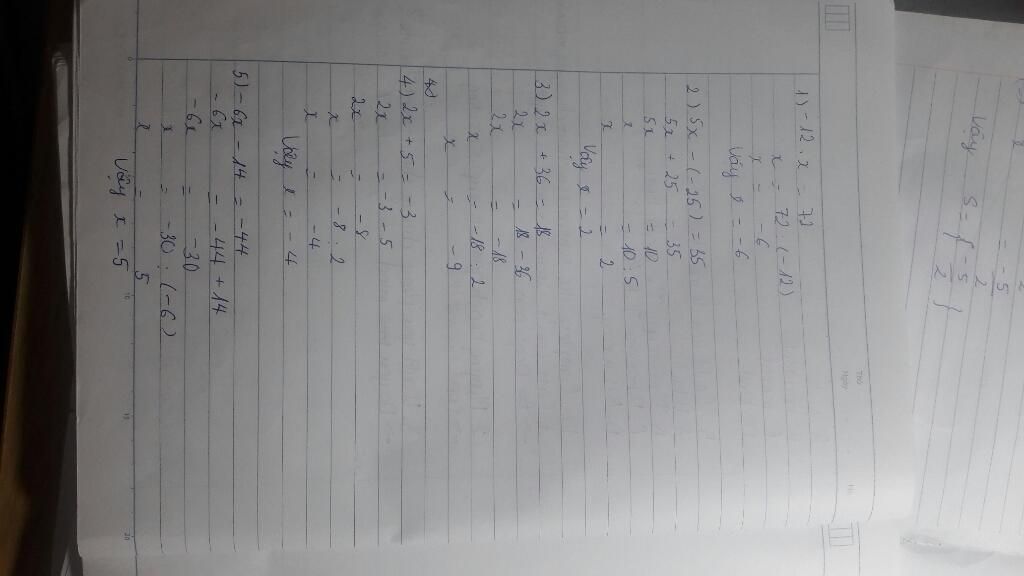 1) -12 . x = 72
x = 72 : (-12)
x = -6
Vậy x = -6
2) 5x - (-25) = 35
5x + 25 = 35
5x = 10
x = 10 : 5
x = 2
Vậy x = 2
3) 2x + 36 = 18
2x = 18 - 36
2x = -18
x = -18 : 2
x = -9
4) 2x + 5 = -3
2x = -3 - 5
2x = -8
x = -8 : 2
x = -4
Vậy x = -4
5) -6x - 14 = -44
-6x = -44 + 14
-6x = -30
x = -30 : (-6)
x = 5
Vậy x = 5
= -5/2
Vậy S = { -5/2 }